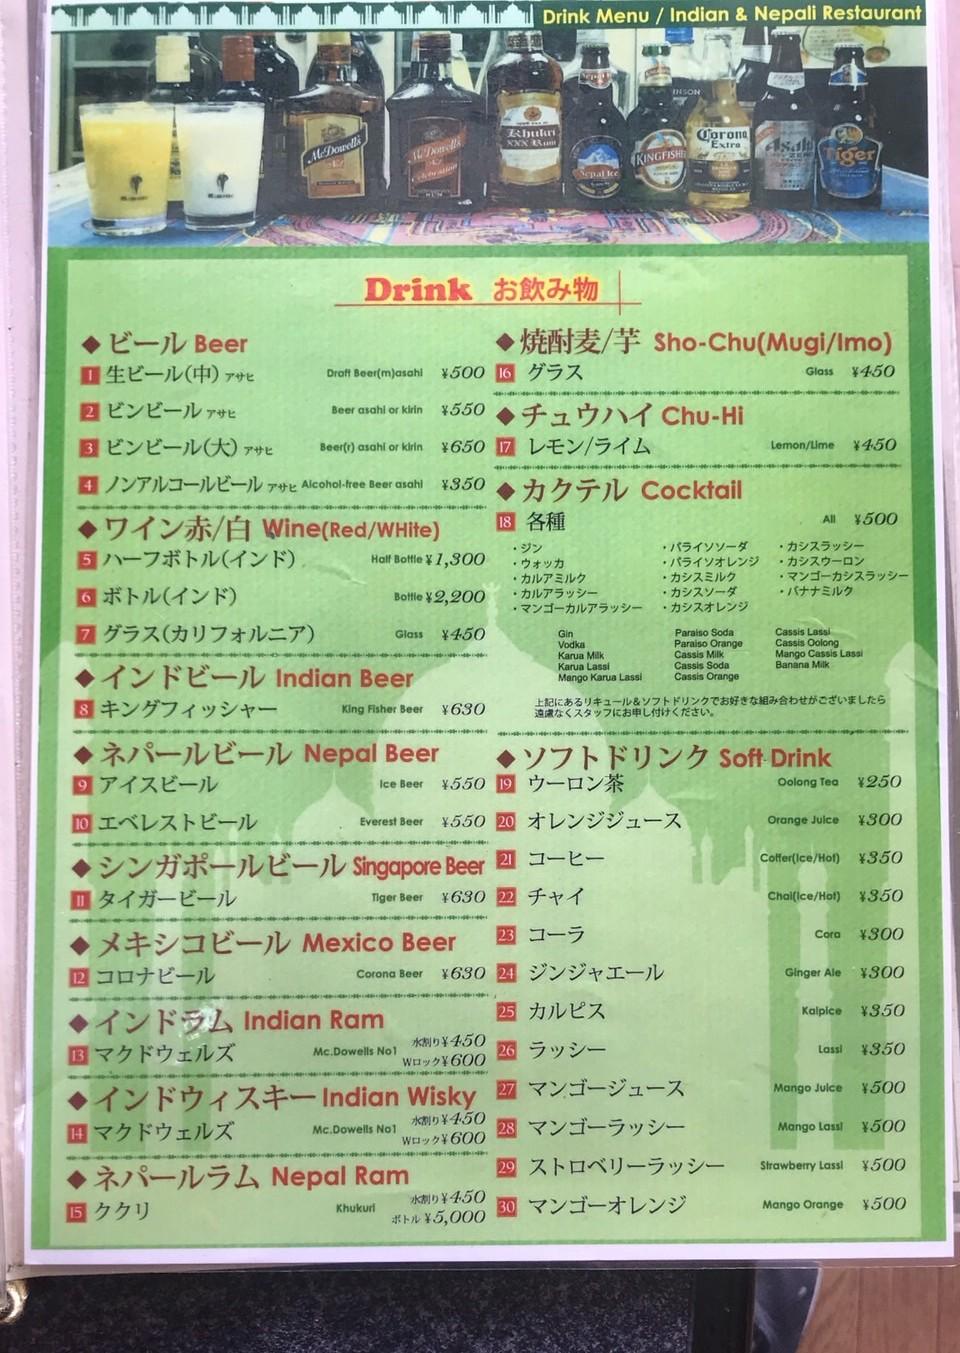 Drink Menu / Indian & Nepali Restaurant
McDowell's
McDowell's
Celebration
RUM
Khukri
XXX Rum
Nepal Ice
KINGFISHER
Corona
Extra
Asahi
Tiger
Drink お飲み物
◆ ビール Beer
1 生ビール(中) アサヒ Draft Beer(m)asahi ¥500
2 ビンビール アサヒ Beer asahi or kirin ¥550
3 ビンビール(大) アサヒ Beer(r) asahi or kirin ¥650
4 ノンアルコールビール アサヒ Alcohol-free Beer asahi ¥350
◆ ワイン赤/白 Wine(Red/WHite)
5 ハーフボトル(インド) Half Bottle ¥1,300
6 ボトル(インド) Bottle ¥2,200
7 グラス(カリフォルニア) Glass ¥450
◆ インドビール Indian Beer
8 キングフィッシャー King Fisher Beer ¥630
◆ ネパールビール Nepal Beer
9 アイスビール Ice Beer ¥550
10 エベレストビール Everest Beer ¥550
◆ シンガポールビール Singapore Beer
11 タイガービール Tiger Beer ¥630
◆ メキシコビール Mexico Beer
12 コロナビール Corona Beer ¥630
◆ インドラム Indian Ram
13 マクドウェルズ Mc.Dowells No1 水割り¥450
Wロック¥600
◆ インドウィスキー Indian Wisky
14 マクドウェルズ Mc.Dowells No1 水割り¥450
Wロック¥600
◆ ネパールラム Nepal Ram
15 ククリ Khukuri 水割り¥450
ボトル ¥5,000
◆ 焼酎麦/芋 Sho-Chu(Mugi/Imo)
16 グラス Glass ¥450
◆ チュウハイ Chu-Hi
17 レモン/ライム Lemon/Lime ¥450
◆ カクテル Cocktail
18 各種 All ¥500
・ジン
・ウォッカ
・カルアミルク
・カルアラッシー
・マンゴーカルアラッシー
・パライソソーダ
・パライソオレンジ
・カシスミルク
・カシスソーダ
・カシスオレンジ
・カシスラッシー
・カシスウーロン
・マンゴーカシスラッシー
・バナナミルク
Gin
Vodka
Karua Milk
Karua Lassi
Mango Karua Lassi
Paraiso Soda
Paraiso Orange
Cassis Milk
Cassis Soda
Cassis Orange
Cassis Lassi
Cassis Oolong
Mango Cassis Lassi
Banana Milk
上記にあるリキュール&ソフトドリンクでお好きな組み合わせがございましたら
遠慮なくスタッフにお申し付けください。
◆ ソフトドリンク Soft Drink
19 ウーロン茶 Oolong Tea ¥250
20 オレンジジュース Orange Juice ¥300
21 コーヒー Coffer(Ice/Hot) ¥350
22 チャイ Chai(Ice/Hot) ¥350
23 コーラ Cora ¥300
24 ジンジャエール Ginger Ale ¥300
25 カルピス Kalpice ¥350
26 ラッシー Lassi ¥350
27 マンゴージュース Mango Juice ¥500
28 マンゴーラッシー Mango Lassi ¥500
29 ストロベリーラッシー Strawberry Lassi ¥500
30 マンゴーオレンジ Mango Orange ¥500